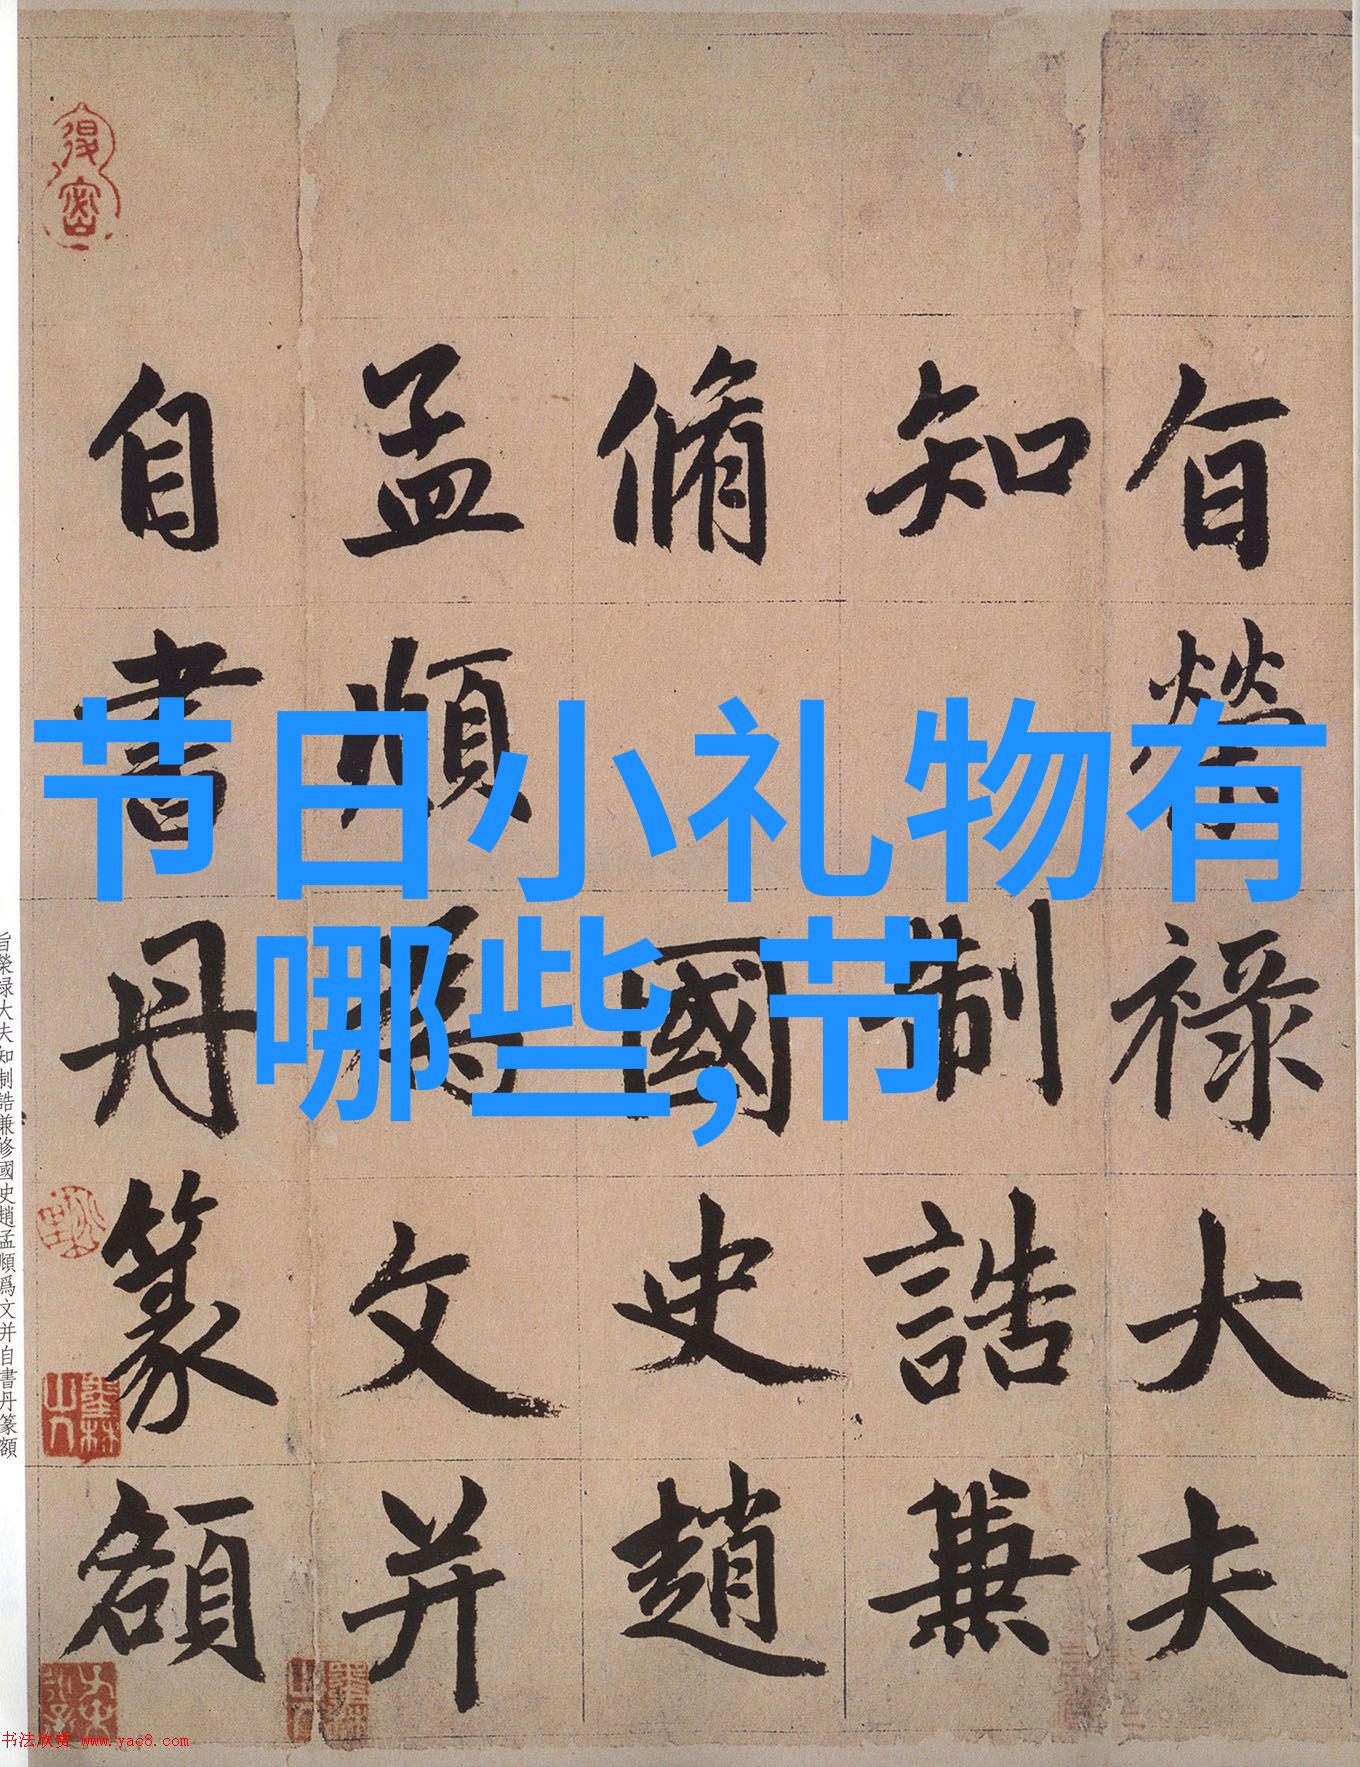 旨榮祿大夫
知制誥兼
脩國史趙
孟頫爲文并
自書丹篆額
节日小礼物有
哪些,节
旨榮祿大夫知制誥兼修國史趙孟頫爲文并自書丹篆額
书法欣赏 www.yac8.com